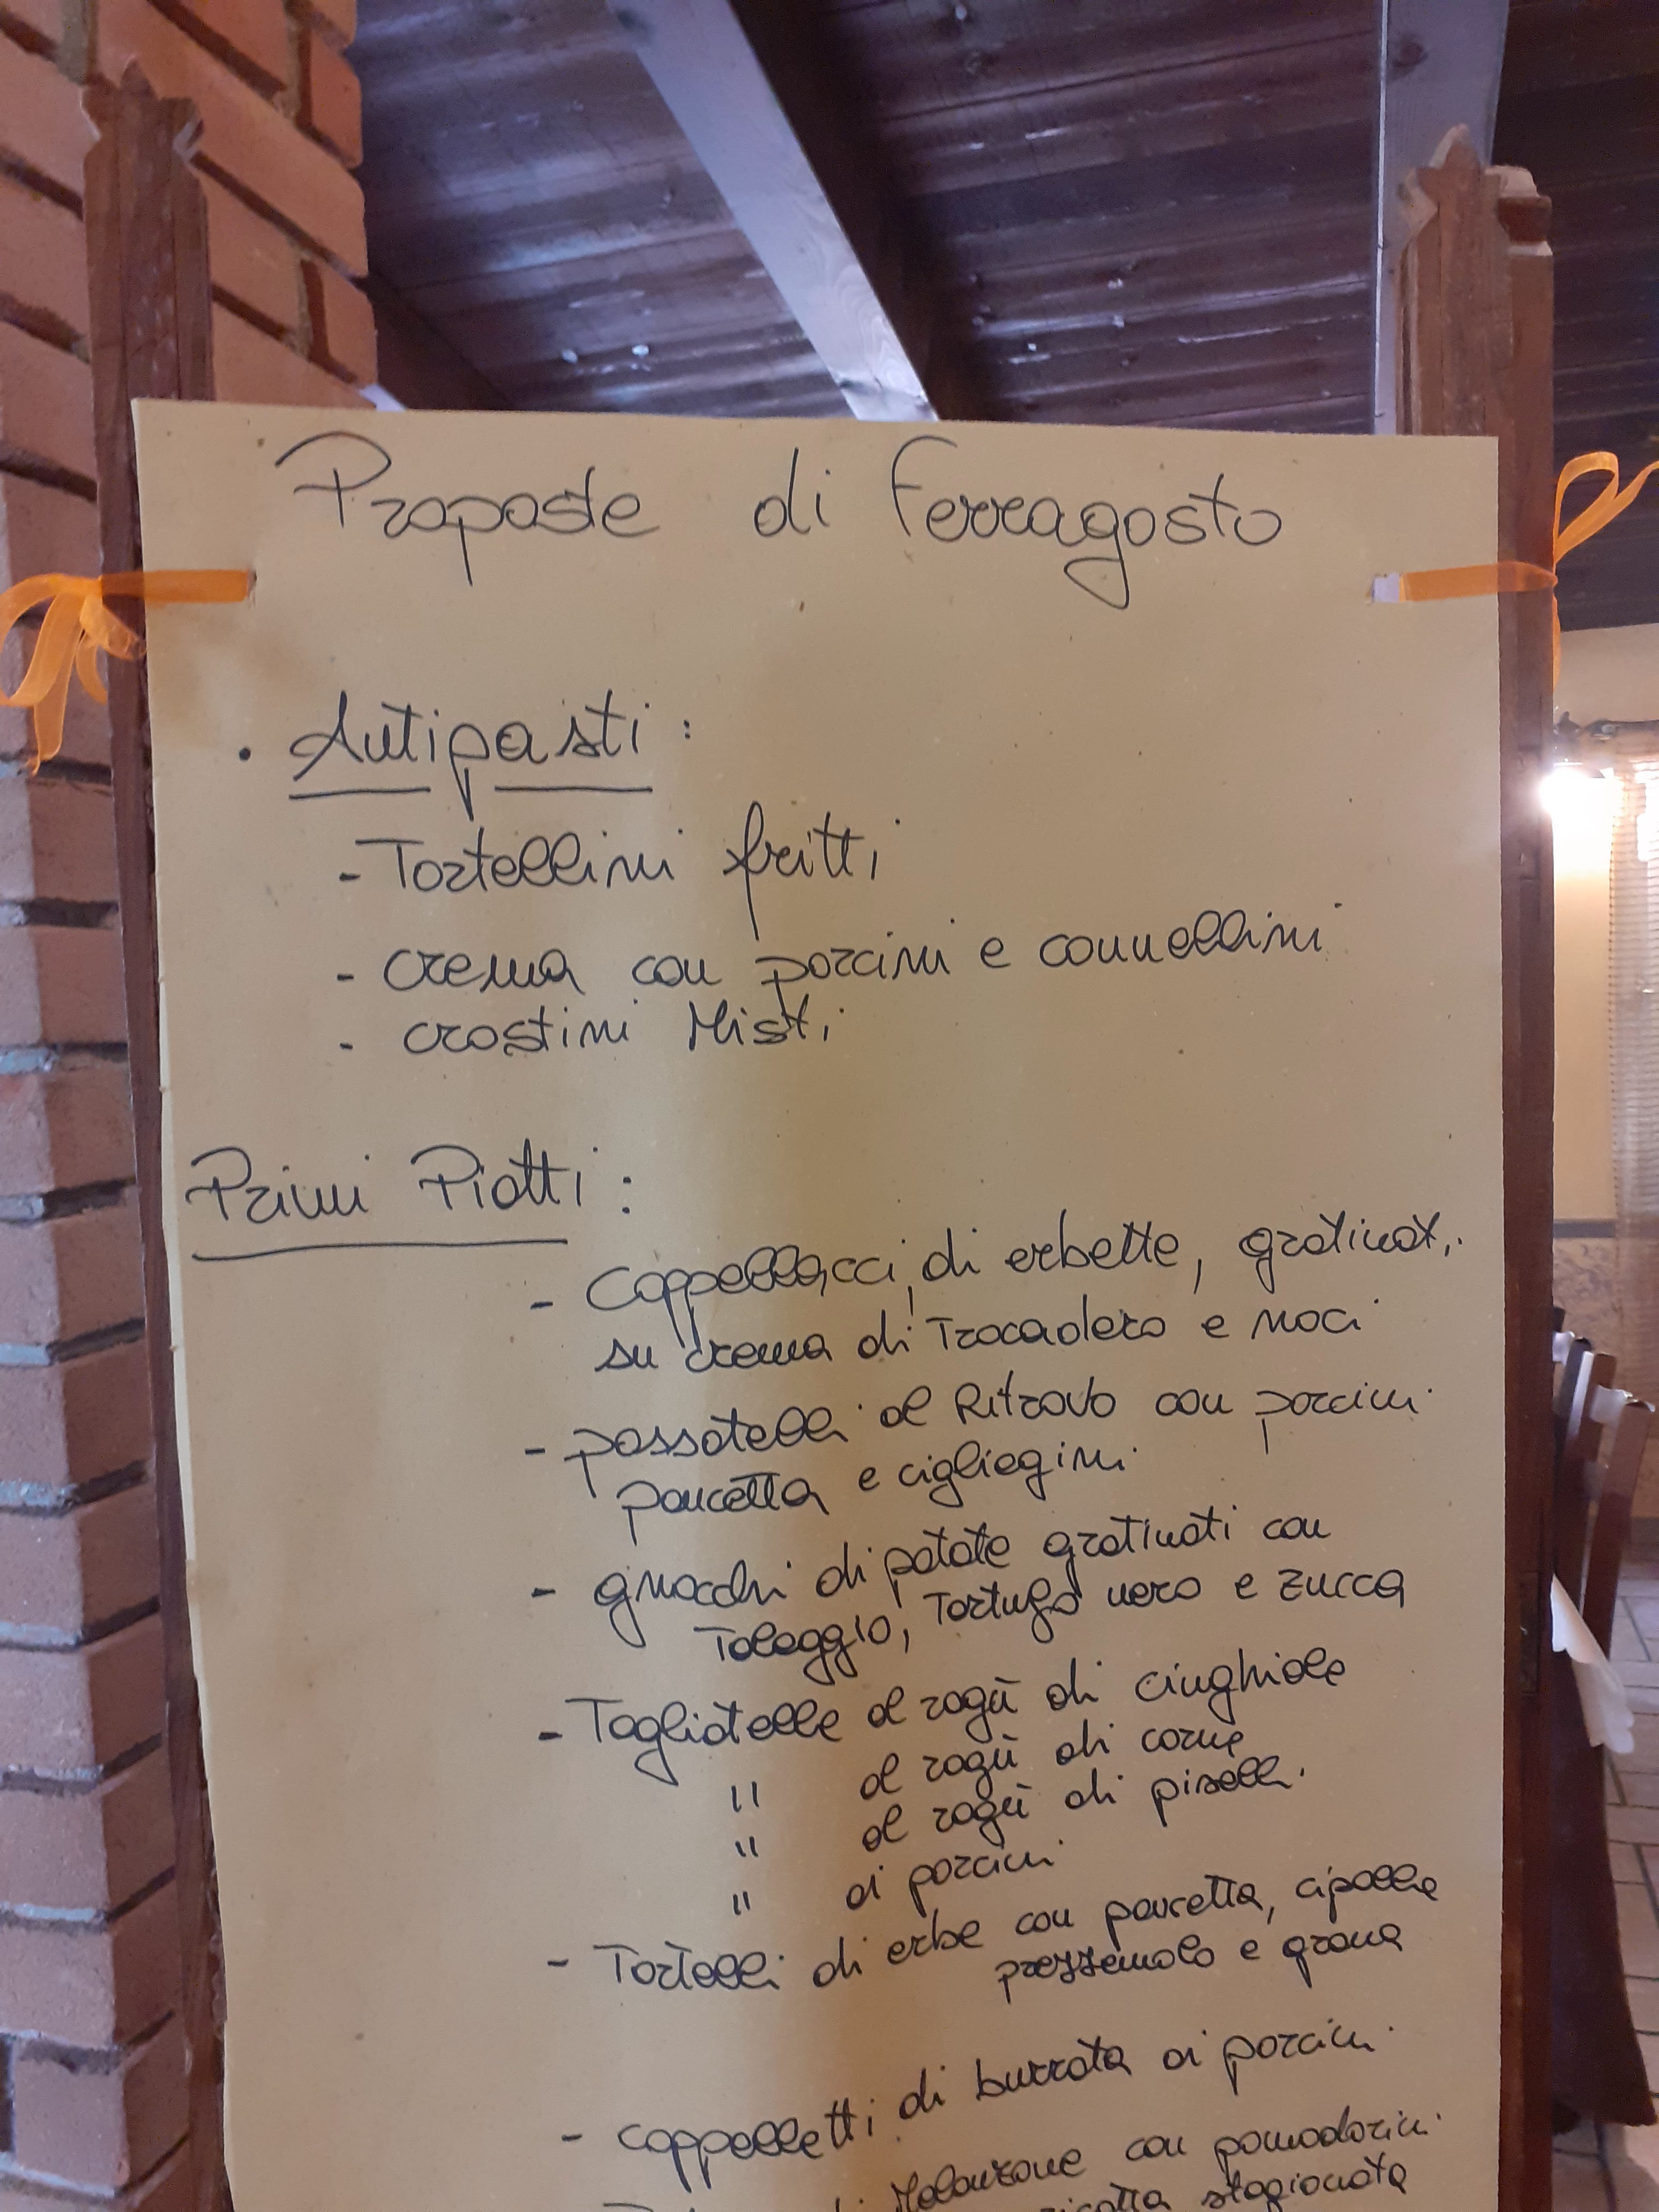 Proposte di Ferragosto
• Antipasti:
- Tortellini fritti
- crema con porcini e cannellini
- crostini Misti
Primi Piatti:
- Cappellacci di erbette, gratinati
su crema di Trocadero e noci
- passatelli al Ritrovo con porcini
pancetta e cigliegini
- gnocchi di patate gratinati con
Taleggio, Tartufo nero e zucca
- Tagliatelle al ragù di cinghiale
" al ragù di carne
" al ragù di piselli
" ai porcini
- Tortelli di erbe con pancetta, cipolla
prezzemolo e grana
- cappelletti di burrata ai porcini
Melanzane con pomodorini
ricotta stagionata